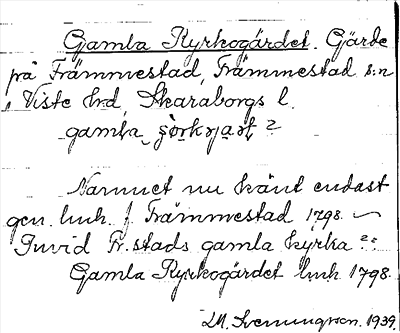 Gamla Kyrkogärdet. Gärde
på Främmestad, Främmestad s:n
, Viste hd, Skaraborgs l.
gamla ?
Namnet nu känt endast
gen. lmh. f Främmestad 1798. –
Invid Fr.stads gamla kyrka??
Gamla Kyrkogärdet lmh 1798.
M. Svenungson. 1939.